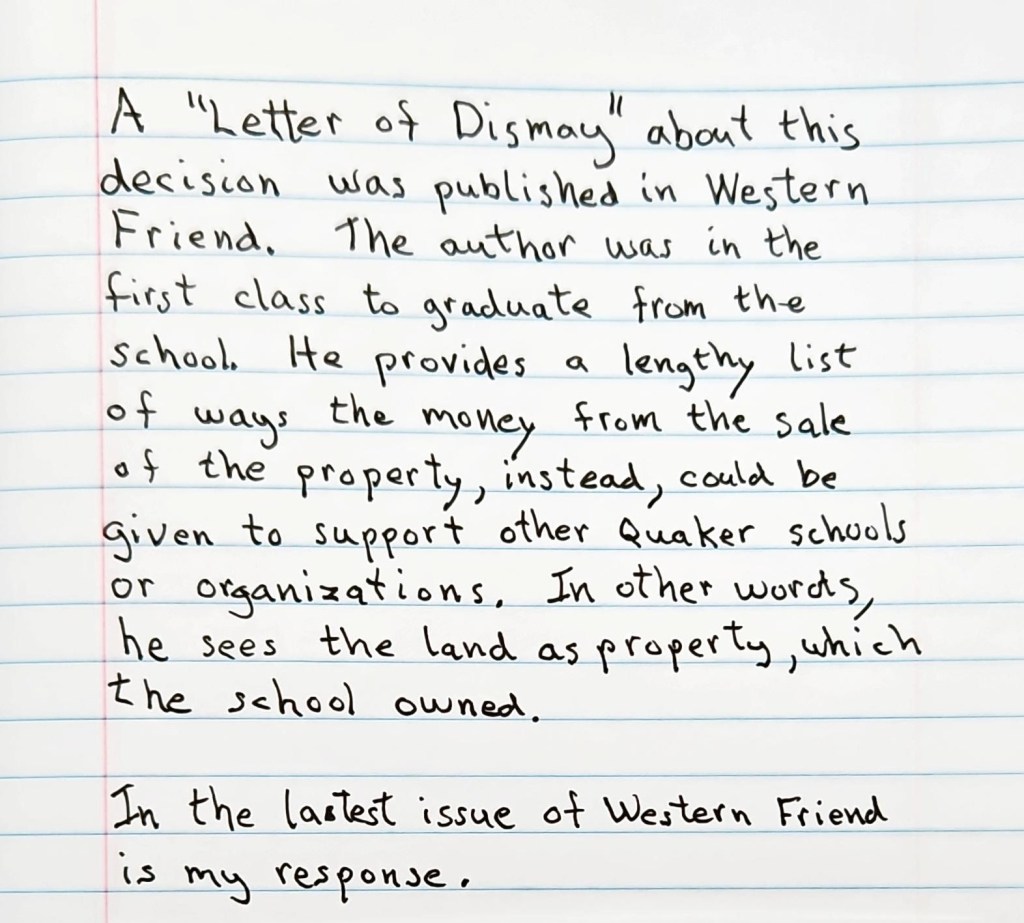 A "Letter of Dismay" about this
decision was published in Western
Friend. The author was in the
first class to graduate from the
school. He provides a lengthy list
of ways the money from the sale
of the property, instead, could be
given to support other Quaker schools
or organizations. In other words,
he sees the land as property, which
the school owned.
In the lastest issue of Western Friend
is my response.